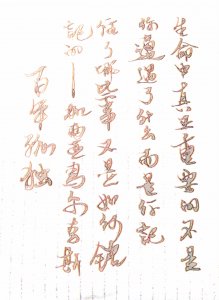 生命中真正重要的不是
你遭遇了什么而是你记
住了哪些事又是如何铭
记的——加西亚马尔克斯
百年孤独